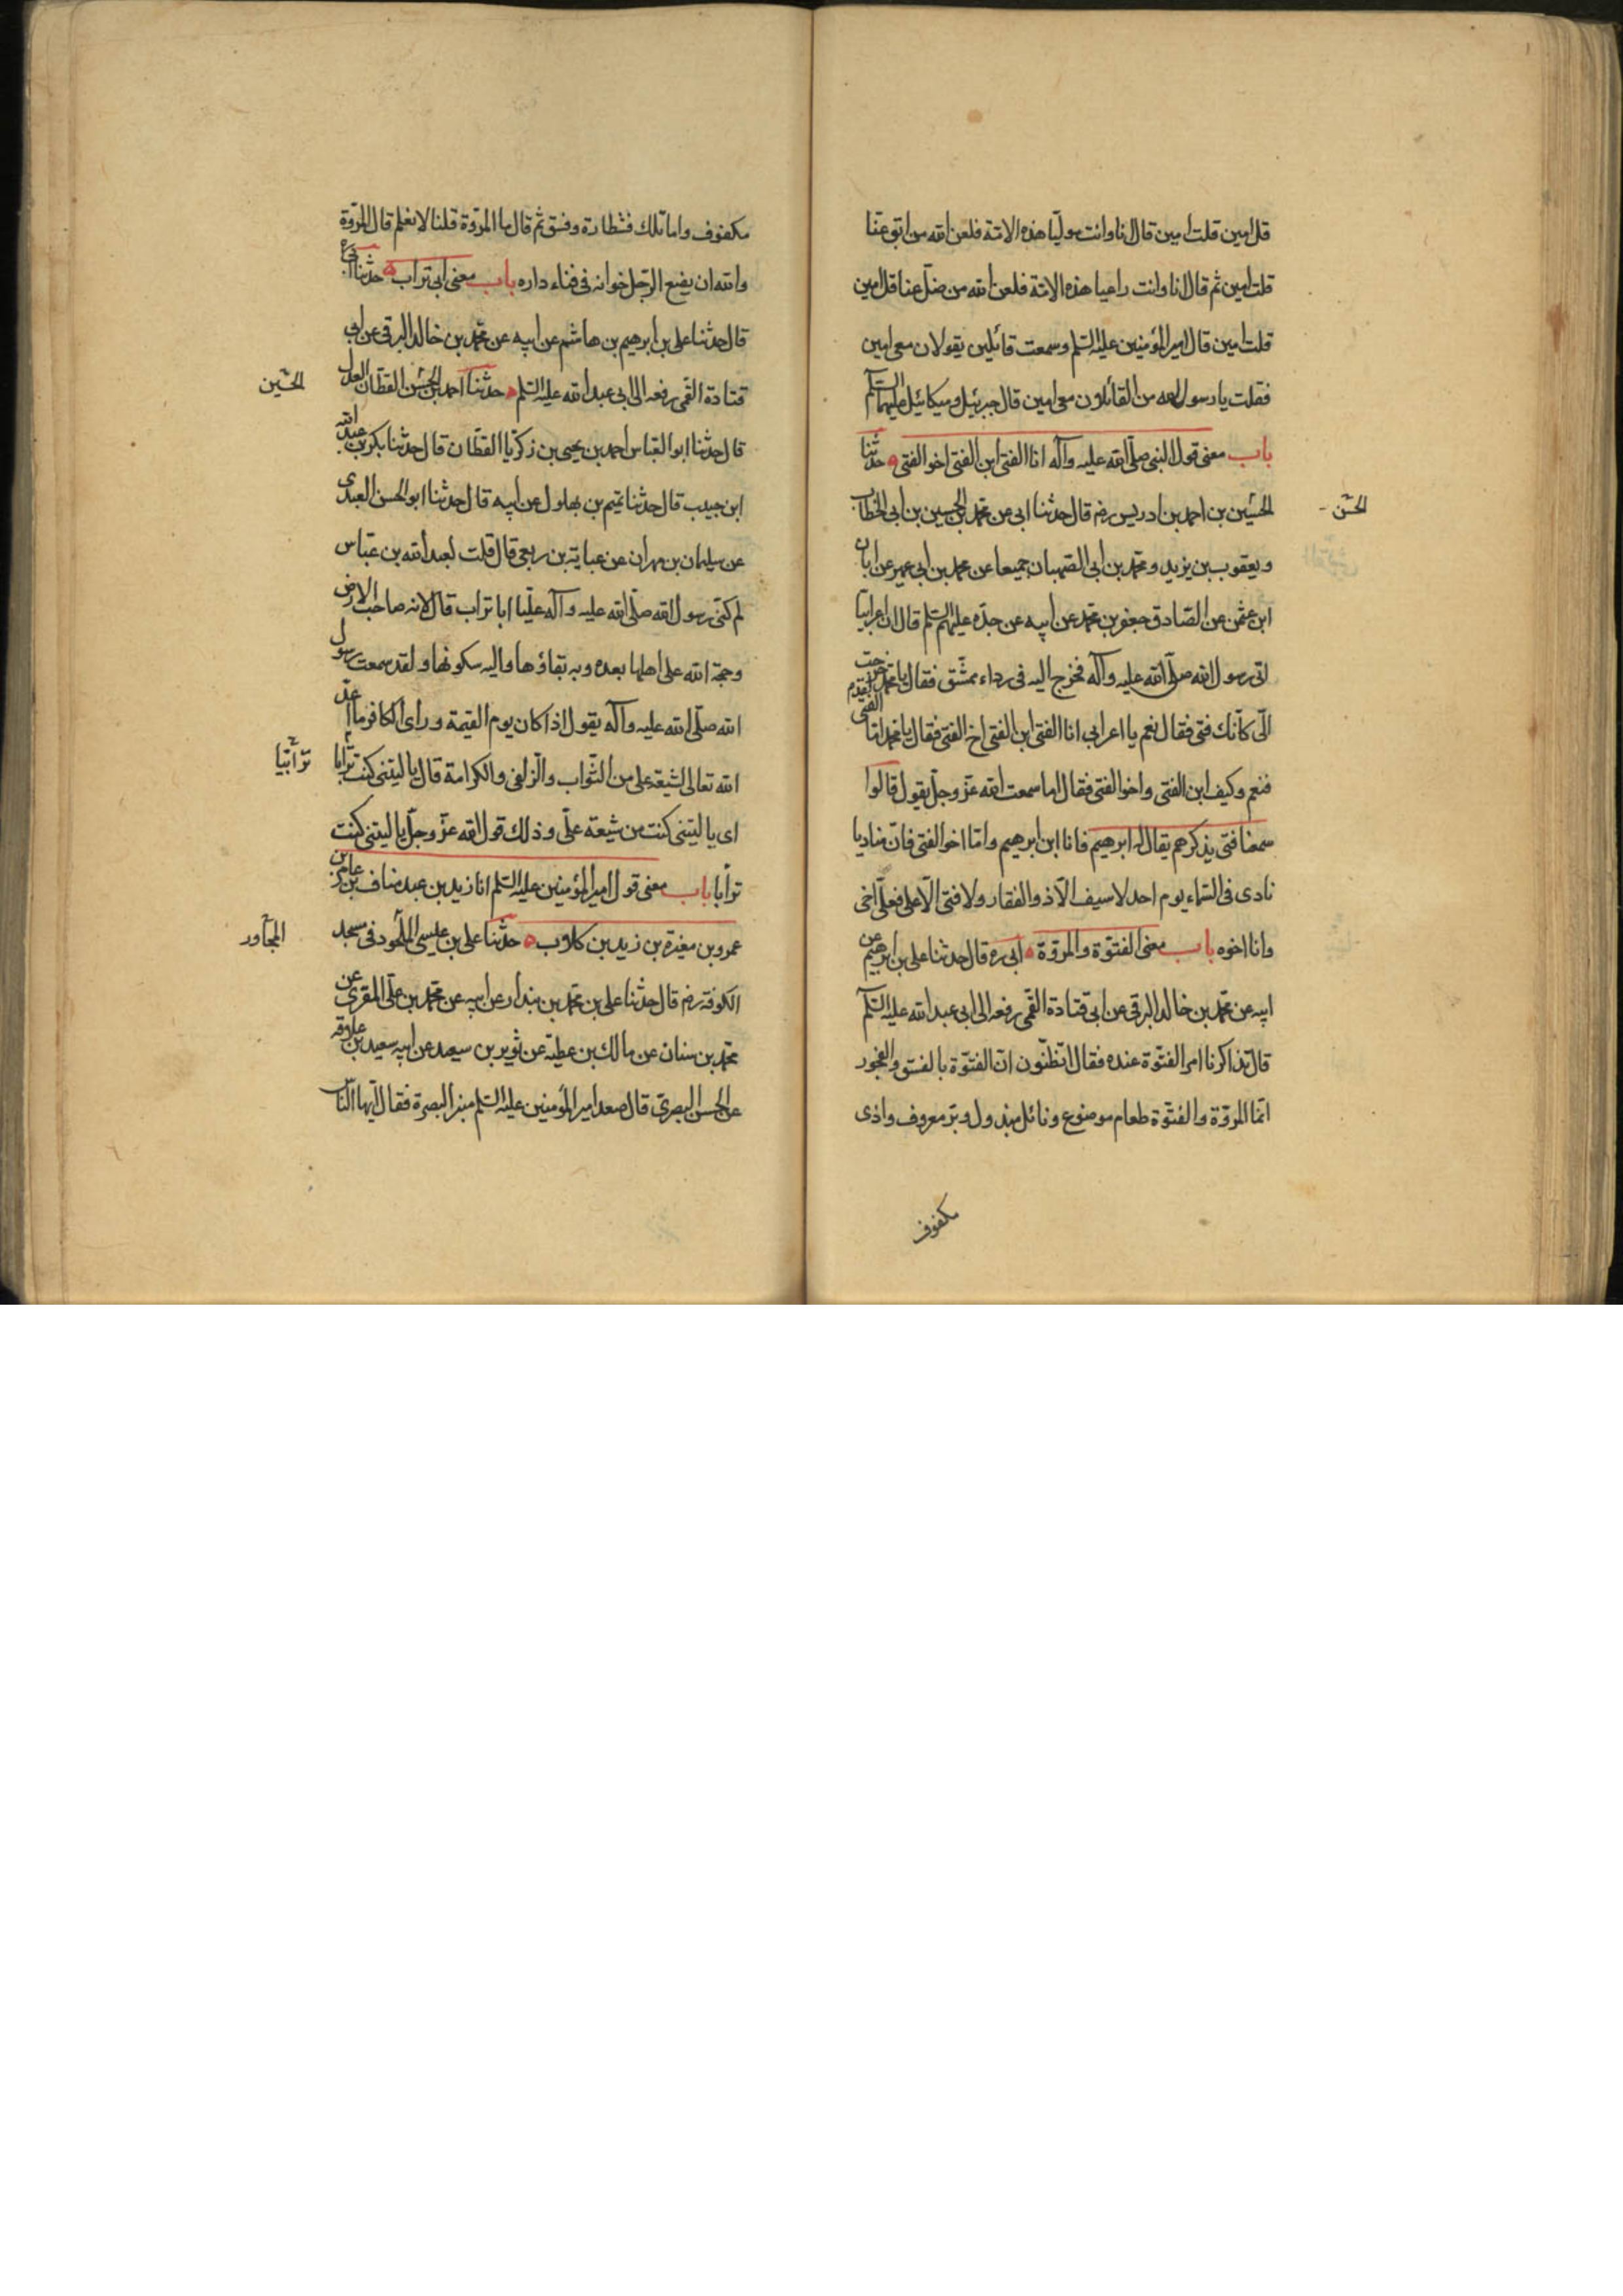 قل امين قلت امين قال انا وانت موليا هذه الامة فلعن الله من ابق عنا
قلت امين ثم قال انا وانت راعيا هذه الامة فلعن الله من ضل عنا قل امين
قلت امين قال امير المؤمنين عليه السلم وسمعت قائلين يقولان معي امين
فقلت يا رسول الله من القائلون معي امين قال جبرئيل وميكائيل عليهما السلم
باب معنى قول النبي صلى الله عليه وآله انا الفتى ابن الفتى اخو الفتى حدثنا
الحسين بن احمد بن ادريس رضه قال حدثنا ابي عن محمد بن الحسين بن ابي الخطاب
الحسن
ويعقوب بن يزيد ومحمد بن ابي الصهبان جميعا عن محمد بن ابي عمير عن ابان
ابن عثمن عن الصادق جعفر بن محمد عن ابيه عن جده عليهم السلم قال ان اعرابيا
اتى رسول الله صلى الله عليه وآله فخرج اليه في رداء ممشق فقال يا محمد لقد خرجت
الي كانك فتى فقال نعم يا اعرابي انا الفتى ابن الفتى اخ الفتى فقال يا محمد اما الفتى
فنعم وكيف ابن الفتى واخو الفتى فقال اما سمعت الله عز وجل يقول قالوا
سمعنا فتى يذكرهم يقال له ابرهيم فانا ابن ابرهيم واما اخو الفتى فان مناديا
نادى في السماء يوم احد لا سيف الا ذو الفقار ولا فتى الا علي فعلي اخي
وانا اخوه باب معنى الفتوة والمروة ابي ره قال حدثنا علي بن ابرهيم عن
ابيه عن محمد بن خالد البرقي عن ابي قتادة القمي رفعه الى ابي عبد الله عليه السلم
قال تذاكرنا امر الفتوة عنده فقال اتظنون ان الفتوة بالفسق والفجور
انما المروة والفتوة طعام موضوع ونائل مبذول وبر معروف واذى
مكفوف
مكفوف واما تلك فشطارة وفسق ثم قال ما المروة قلنا لا نعلم قال المروة
والله ان يضع الرجل خوانه في فناء داره باب معنى ابي تراب حدثنا ابي ره
قال حدثنا علي بن ابرهيم بن هاشم عن ابيه عن محمد بن خالد البرقي عن ابي
قتادة القمي رفعه الى ابي عبد الله عليه السلم حدثنا احمد بن الحسن القطان العدل
الحسين
قال حدثنا ابو العباس احمد بن يحيى بن زكريا القطان قال حدثنا بكر بن عبد الله
ابن حبيب قال حدثنا تميم بن بهلول عن ابيه قال حدثنا ابو الحسن العبدي
عن سليمان بن مهران عن عباية بن ربعي قال قلت لعبد الله بن عباس
لم كنى رسول الله صلى الله عليه وآله عليا ابا تراب قال لانه صاحب الارض
وحجة الله على اهلها بعده وبه بقاؤها واليه سكونها ولقد سمعت رسول
الله صلى الله عليه وآله يقول اذا كان يوم القيمة وراى الكافر ما اعد
الله تعالى لشيعة علي من الثواب والزلفى والكرامة قال يا ليتني كنت ترابا
ترابيا
اي يا ليتني كنت من شيعة علي وذلك قول الله عز وجل يا ليتني كنت
ترابا باب معنى قول امير المؤمنين عليه السلم انا زيد بن عبد مناف بن عامر بن
عمرو بن مغيرة بن زيد بن كلاب حدثنا علي بن عيسى في مسجد
المجاور
الكوفة رضه قال حدثنا علي بن محمد بن بندار عن ابيه عن محمد بن علي المقري عن
محمد بن سنان عن مالك بن عطية عن ثوير بن سعيد عن ابيه سعيد بن علاقه
عن الحسن البصري قال صعد امير المؤمنين عليه السلم منبر البصرة فقال ايها الناس